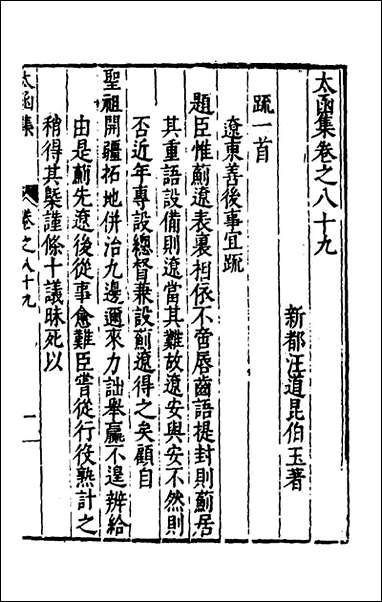 太函集卷之八十九
新都汪道昆伯玉著
疏一首
遼東善後事宜疏
題臣惟薊遼表裏相依不啻唇齒語提封則薊居
其重語設備則遼當其難故遼安與安不然則
否近年專設總督兼設薊遼得之矣顧自
聖祖開疆拓地併治九邊邇來力詘舉贏不遑辨給
由是薊先遼後從事愈難臣嘗從行役熟計之
稍得其槩謹條十議昧死以
太函集
卷之八十九
一